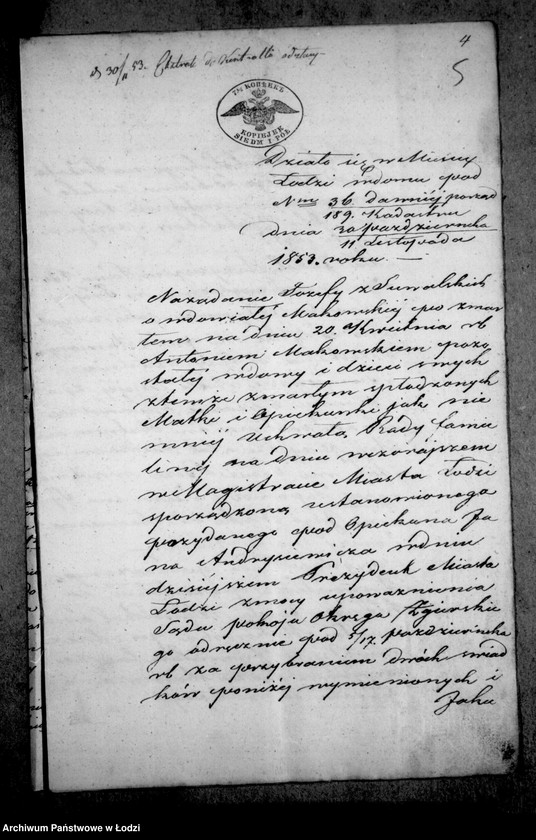 4
5
d 30/11 53. Extrakt do Kontrolli odesłany
7½ КОПѢЕКЪ
KOPIEJEK
SIEDM I PÓŁ
Działo się w Mieście
Łodzi w domu pod
Nrm 36. dawniej porząd
189. Kadastru
dnia 30 października
11 Listopada
1853. roku. —
Na żądanie Józefy z Suwalskich
owdowiałej Makowskiej po zmar
łem na dniu 20. Kwietnia rb
Antoniem Makowskiem pozo
stałej wdowy i dzieci swych
z temże zmarłym spłodzonych
Matki i Opiekunki jak nie
mniej Uchwałą Rady fami
lijnej na dniu wczorajszem
w Magistracie Miasta Łodzi
sporządzoną ustanowionego
przydanego pod Opiekuna Ja
na Andrysiewicza w dniu
dzisiejszem Prezydent Miasta
Łodzi z mocy upoważnienia
Sądu pokoju Okręgu Zgierskie
go odręcznie pod 5/17. października
rb za przybraniem dwóch świad
ków poniżej wymienionych i
Jako
Archiwum Państwowe w Łodzi